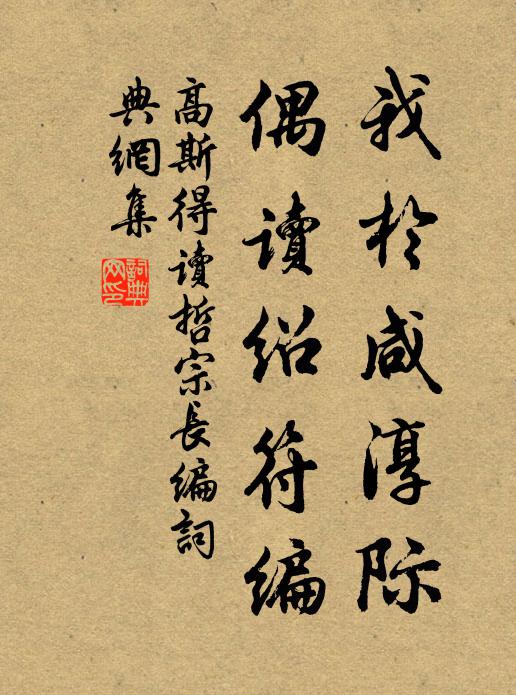 我於咸淳际
偶讀紹符編
高斯得讀哲宗長編詞
典網集
詞典
网印